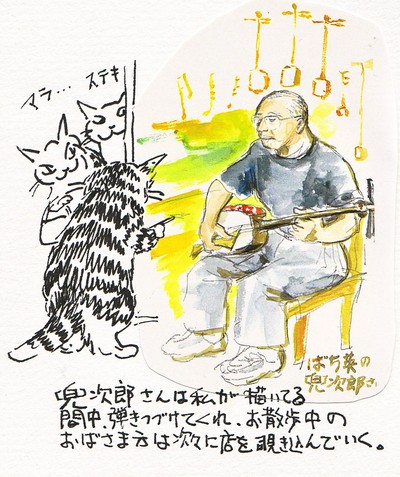 マラ… ステキ
ばち英の
兜次郎さん
兜次郎さんは私が描いてる
間中、弾きつづけてくれ、お散歩中の
おばさま方は次々に店を覗き込んでいく。